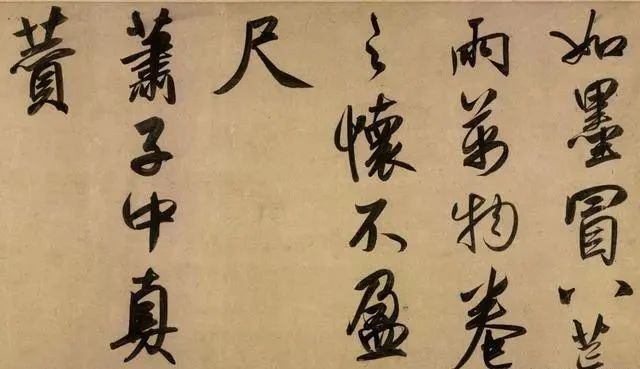 如墨冒八荒
雨萬物卷
之懷不盈
尺
蕭子中真
贊